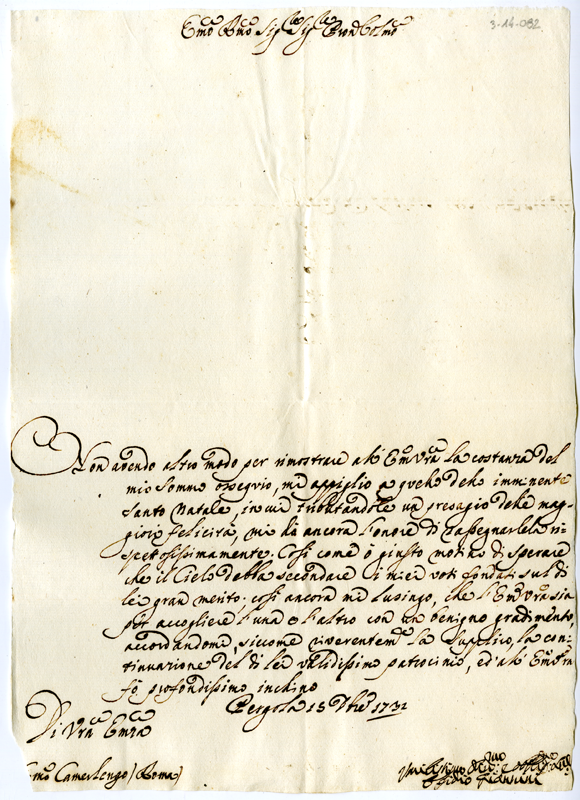 3-14-032
Emo Rmo Sig Sig Pron Colmo
Non avendo altro modo per rimostrare all' Em Vra la costanza del
mio sommo ossequio, mi appiglio a quello dell' imminente
Santo Natale, in cui tributandole un presagio delle mag-
giori felicità, mi dò ancora l'onore di rassegnarlela ri-
spettosissimamente. Così come ò giusto motivo di sperare
che il Cielo debba secondare i miei voti fondati sul di
lei gran merito; così ancora mi lusingo, che l'Em Vra sia
per accogliere l'una e l'altro con un benigno gradimento,
accordandomi, siccome riverentemte la supplico, la con-
tinuazione del di lei validissimo patrocinio, ed all' Em Vra
fò profondissimo inchino
Pergola 15 Dbre 1731
Di Vra Emza
Emo Camerlengo (Roma)